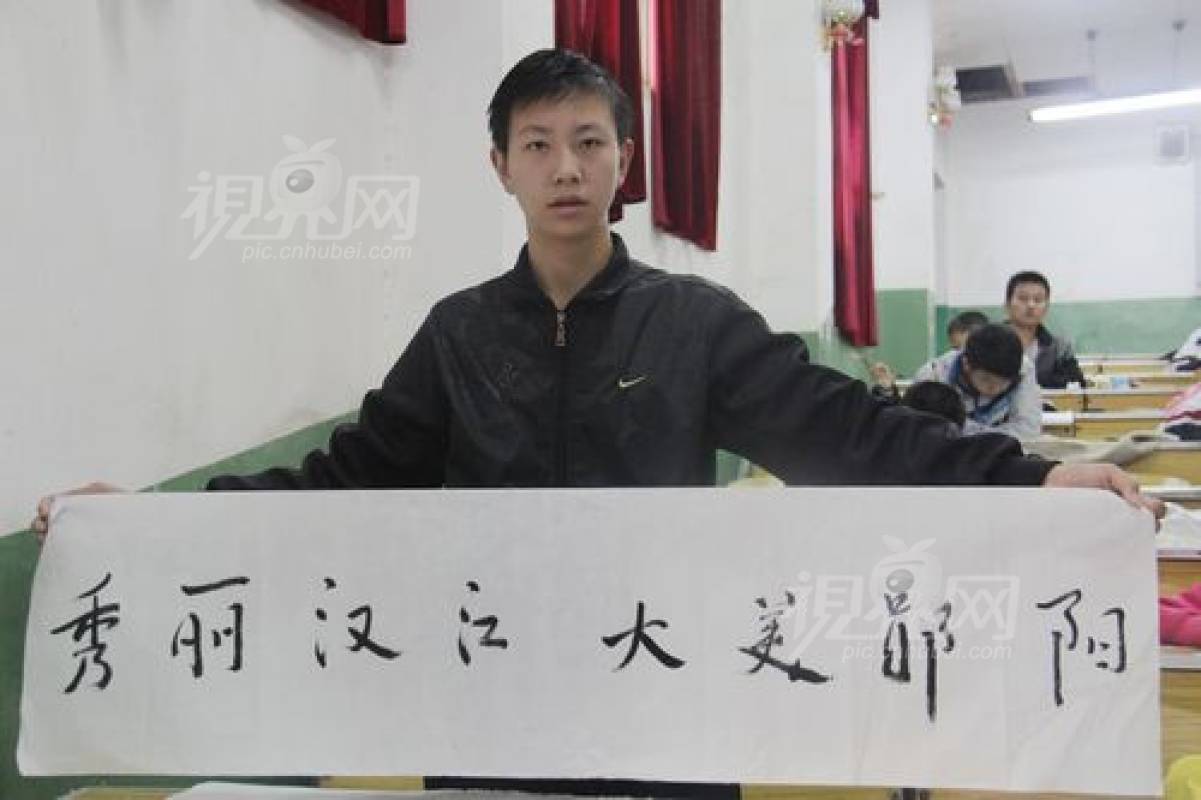 視界网
pic.cnhubei.com
秀丽汉江大美郧阳
視界网
pic.cnhubei.com